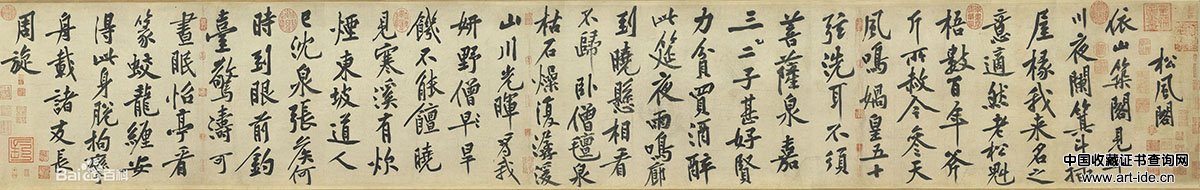 松風閣
依山築閣見平
川夜闌箕斗插
屋椽我來名之
意適然老松魁
梧數百年斧
斤所赦今參天
風鳴媧皇五十
弦洗耳不須
菩薩泉嘉
三二子甚好賢
力貧買酒醉
此筵夜雨鳴廊
到曉懸相看
不歸臥僧氈泉
枯石燥復潺湲
山川光暉為我
妍野僧早旱
饑不能饘曉
見寒溪有炊
煙東坡道人
已沈泉張侯何
時到眼前釣
臺驚濤可
晝眠怡亭看
篆蛟龍纏安
得此身脫拘攣
舟載諸友長
周旋
Bai百科
中国收藏证书查询网
www.art-ide.cn